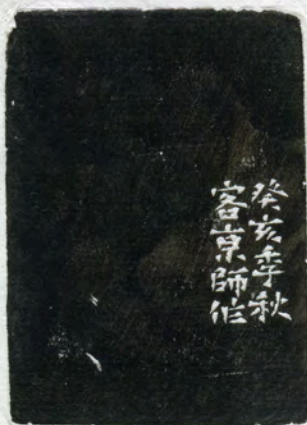 癸亥季秋
客京師作